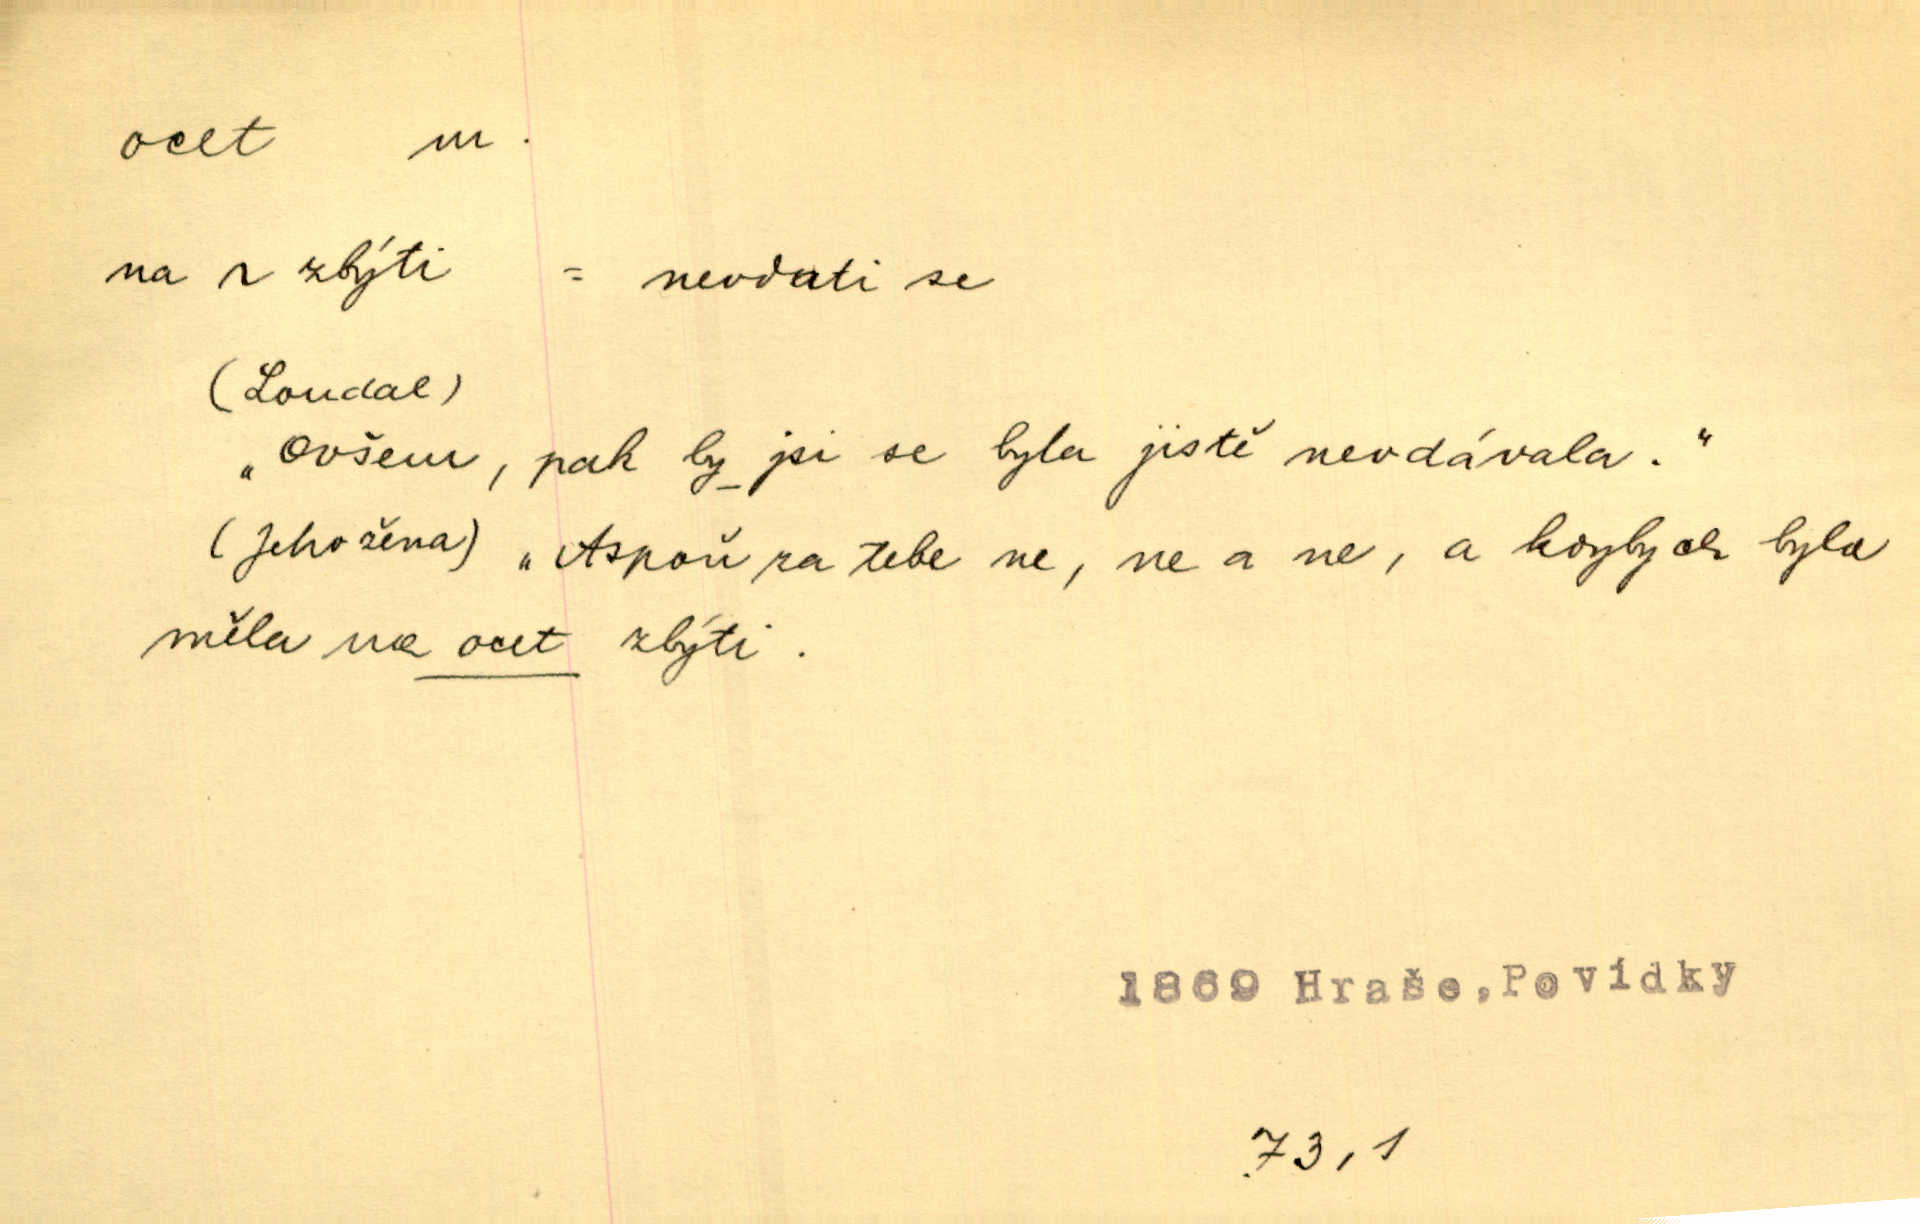 ocet m.
na ~ zbýti = nevdati se
(Loudal)
„Ovšem, pak by_jsi se byla jistě nevdávala."
(Jeho žena) „Aspoň za tebe ne, ne a ne, a kdybych byla
měla na ocet zbýti.
1869 Hraše,Povídky
73,1